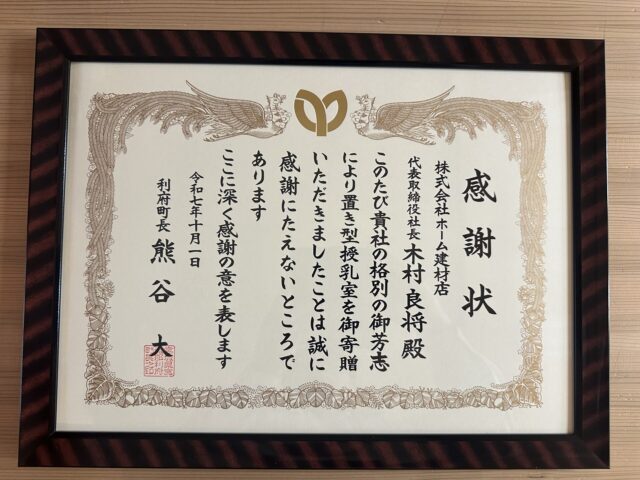 感謝状
株式会社ホーム建材店
代表取締役社長 木村良将殿
このたび貴社の格別の御芳志
により置き型授乳室を御寄贈
いただきましたことは誠に
感謝にたえないところで
あります
ここに深く感謝の意を表します
令和七年十月一日
利府町長 熊谷大